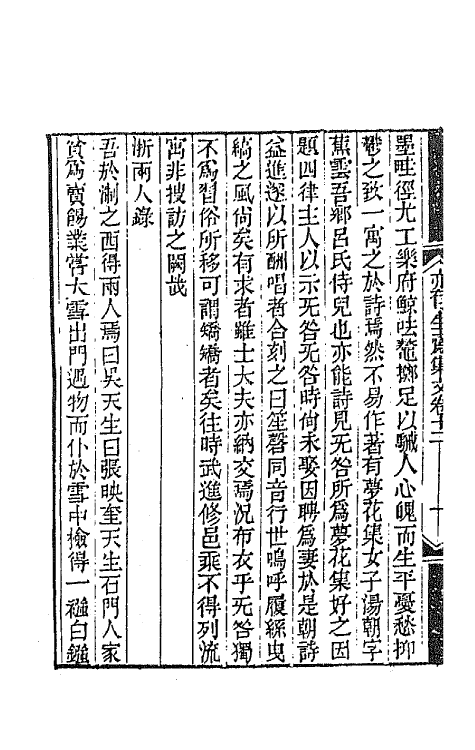 墨畦徑尤工樂府鯨呿鼇擲足以駴人心魄而生平憂愁抑
鬱之致一寓之於詩焉然不易作著有夢花集女子湯朝字
蕉雲吾鄉呂氏侍兒也亦能詩見无咎所爲夢花集好之因
題四律主人以示无咎无咎時尚未娶因聘爲妻於是朝詩
益進遂以所酬唱者合刻之曰笙磬同音行世嗚呼履絲曳
縞之風尙矣有求者雖士大夫亦納交焉況布衣乎无咎獨
不爲習俗所移可謂矯矯者矣往時武進修邑乘不得列流
寓非搜訪之闕哉
浙兩人錄
吾於淛之西得兩人焉曰吳天生曰張映奎天生石門人家
貧爲賣餳業嘗大雪出門遇物而仆於雪中檢得一襁白鏹
亦有生齋集文卷十二